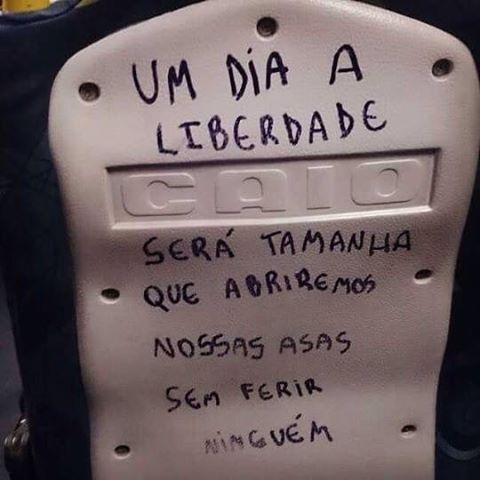 UM DÍA A
LIBERDADE
CAIO
SERÁ TAMANHA
QUE ABRIREMOS
NOSSAS ASAS
SEM FERIR
NINGUÉM